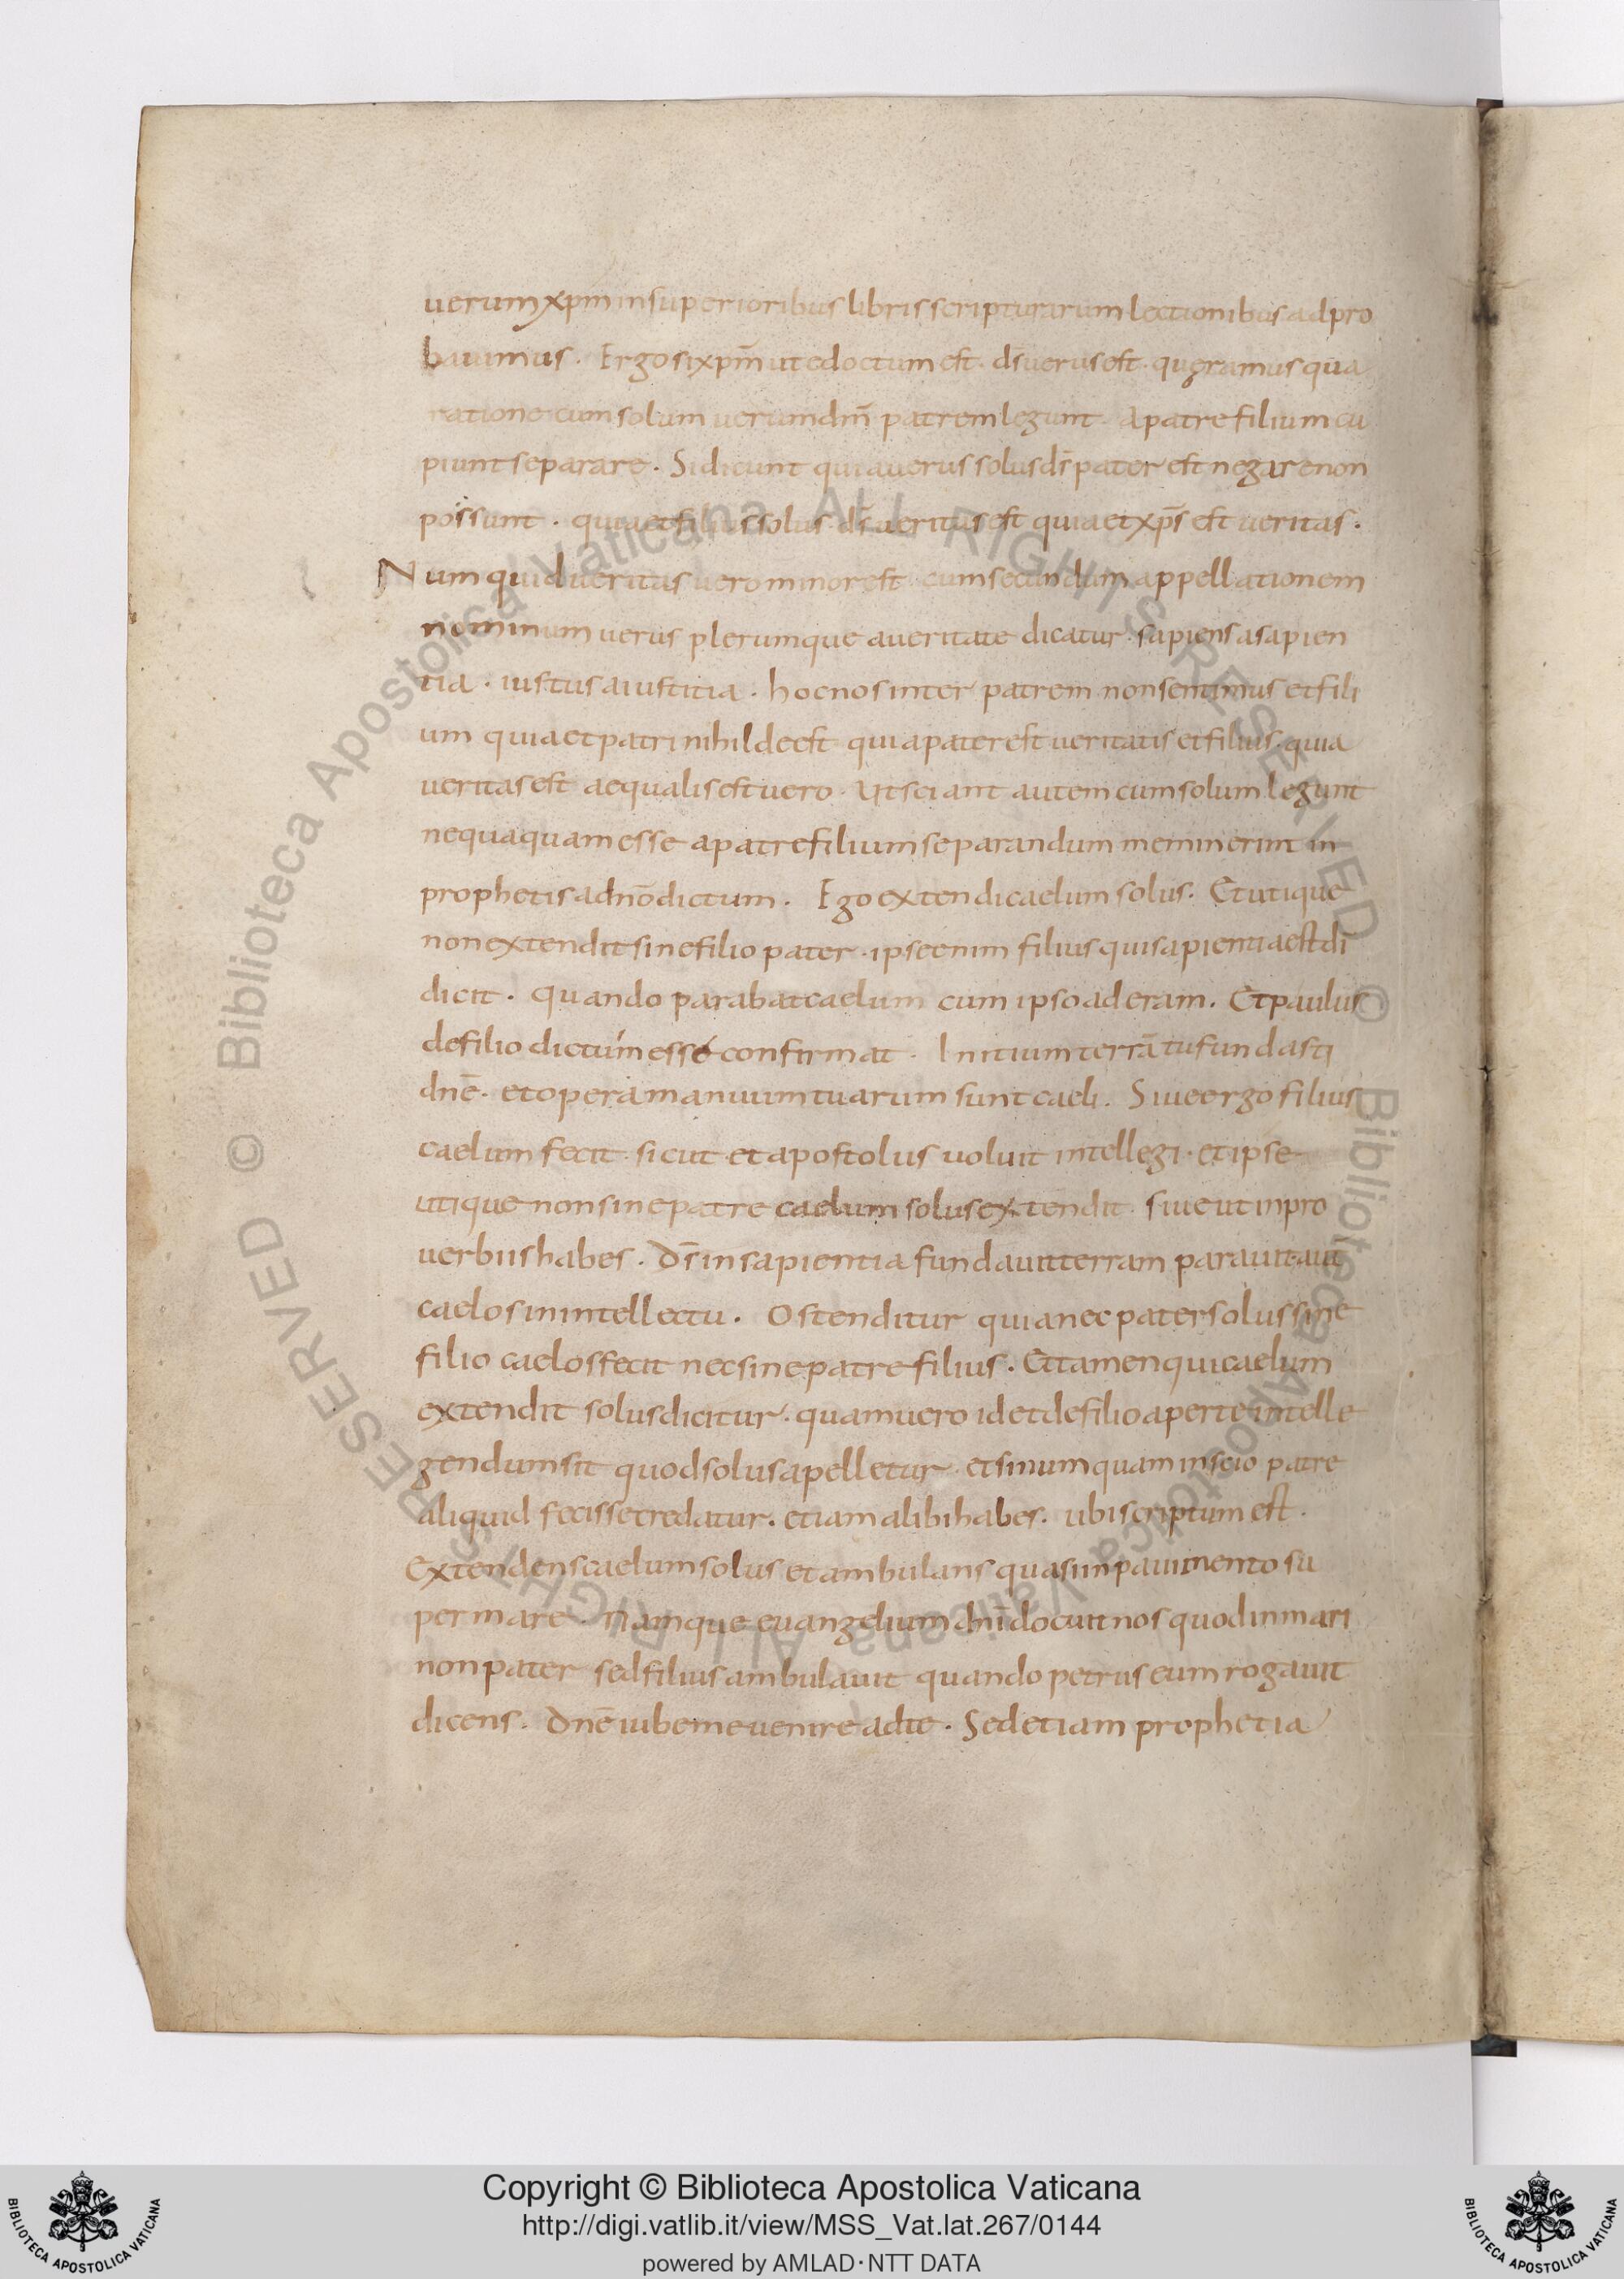 uerum xpm̄ in superioribus libris scripturarum lectionibus adpro
bauimus. Ergo si xpm̄ ut edoctum est. ds̄ uerus est. quęramus qua
ratione cum solum uerum dm̄ patrem legunt. A patre filium cu
piunt separare. Si dicunt quia uerus solus ds̄ pater est negare non
possunt. quia et filius solus ds̄ ueritas est quia et xps̄ est ueritas.
Numquid ueritas uero minor est. cum secundum appellationem
nominum uerus plerumque a ueritate dicatur. sapiens a sapien
tia. iustus a iustitia. hoc nos inter patrem non sentimus et fili
um quia et patri nihil deest quia pater est ueritatis et filius. quia
ueritas est aequalis est uero. Ut sciant autem cum solum legunt
nequaquam esse a patre filium separandum meminerint in
prophetis a dn̄o dictum. Ego extendi caelum solus. Et utique
non extendit sine filio pater. ipse enim filius qui sapientia est di
dicit. Quando parabat caelum cum ipso aderam. Et paulus
de filio dictum esse confirmat. Initium terrā tu fundasti
dn̄e. et opera manuum tuarum sunt caeli. Siue ergo filius
caelum fecit. sicut et apostolus uoluit intellegi. et ipse
utique non sine patre caelum solus extendit. siue ut in pro
uerbiis habes. Ds̄ in sapientia fundauit terram parauit aut
caelos in intellectu. Ostenditur quia nec pater solus sine
filio caelos fecit nec sine patre filius. Et tamen qui caelum
extendit solus dicitur. quam uero id et de filio aperte intelle
gendum sit quod solus apelletur. etsi numquam inscio patre
aliquid fecisse credatur. etiam alibi habes. ubi scriptum est.
Extendens caelum solus et ambulans quasi in pauimento su
per mare. Namque euangelium dn̄i docuit nos quod in mari
non pater sed filius ambulauit quando petrus eum rogauit
dicens. Dn̄e iube me uenire ad te. Sed etiam prophetia
Biblioteca Apostolica Vaticana ALL RIGHTS RESERVED ©
Biblioteca Apostolica Vaticana ALL RIGHTS RESERVED ©
Copyright © Biblioteca Apostolica Vaticana
http://digi.vatlib.it/view/MSS_Vat.lat.267/0144
powered by AMLAD·NTT DATA
BIBLIOTECA APOSTOLICA VATICANA
BIBLIOTECA APOSTOLICA VATICANA